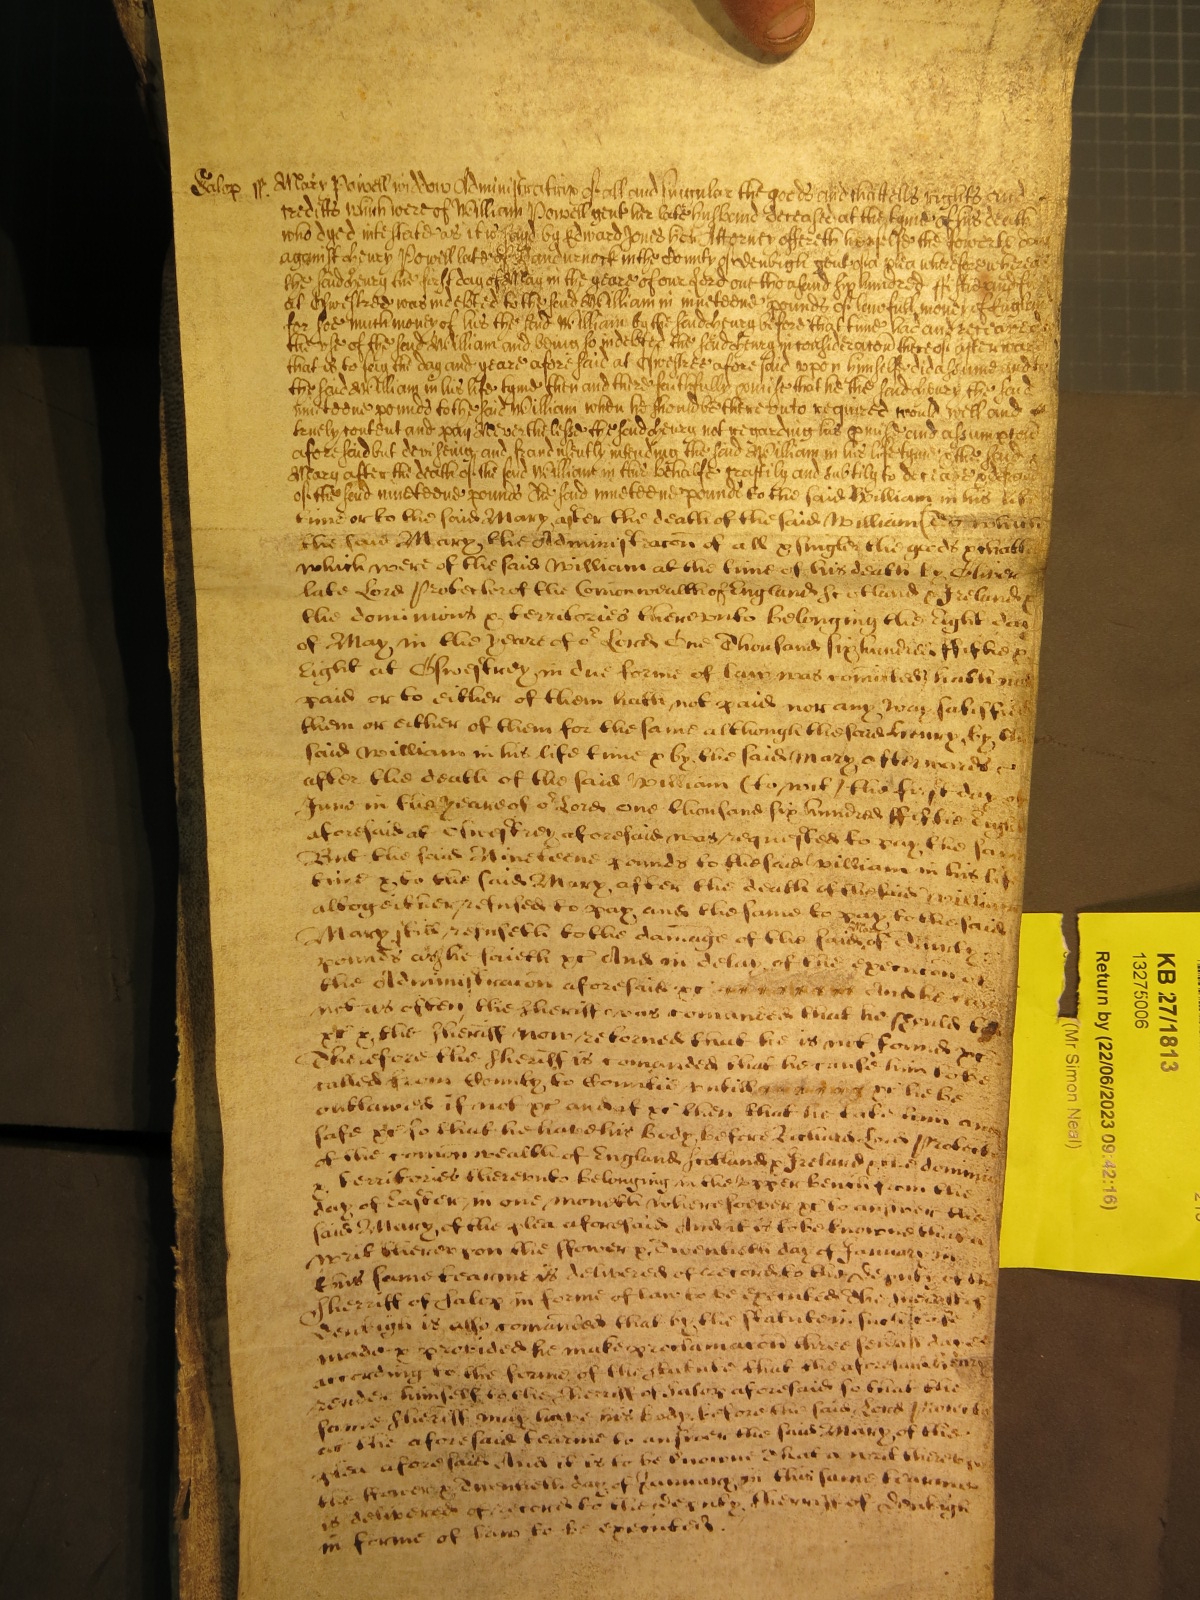 Salop ss. Mary Powell widdow Administratrix of all and singular the goods and chattells rights and
creditts which were of William Powell gent her late husband deceased at the tyme of his death
who dyed intestate as it is sayd by Edward Jones her Attorney offereth herselfe the fowerth day
against Henry Powell late of in the County of Denbigh gent of a plea wherefore whereas
the said Henry the first day of May in the yeare of our Lord one thousand six hundred fiftie and
at Oswestree was indebted to the said William in nineteene pounds of lawfull money of England
for soe much money of his the said William by the said Henry before that time had and received to
the use of the said William and being so indebted the said Henry in consideracon thereof afterwards
that is to say the day and yeare afore said at Oswestree afore said upon himselfe did assume and to
the said William in his life tyme then and there faithfully promise that he the said Henry the said
nineteene pounds to the said William when he should be thereunto required would well and
truely content and pay Neverthelesse the said Henry not regarding his promise and assumption
aforesaid but deviseing and fraudulently intending the said William in his life tyme & the said
Mary after the death of the said William in this behalfe craftily and subtily to deceave & defraud
of the said nineteene pounds the said nineteene pounds to the said William in his life
time or to the said Mary after the death of the said William (To whom
the said Mary, the Administracon of all & singler the goods & chattells
which were of the said William at the time of his death by Oliver
late Lord Protector of the Comonwealth of England Scotland & Ireland &
the dominions & territories thereunto belonging the Eight day
of May in the yeare of or Lord One Thousand six hundred ffiftie &
Eight at Oswestrey in due forme of law was comitted) hath not
paid or to either of them hath not paid nor any way satisfied
them or either of them for the same although the said Henry by the
said William in his life time & by the said Mary afterwards &
after the death of the said William (to wit) the first day of
June in the yeare of or Lord one thousand six hundred ffiftie Eight
aforesaid at Oswestrey aforesaid was requested to pay the same
But the said Nineteene pounds to the said William in his life
time & to the said Mary after the death of the said William
altogeither refused to pay and the same to pay to the said
Mary still refuseth to the damage of the said Mary of Twenty
pounds as she saieth &c And in delay of the execucon of
the Administracon aforesaid &c And he came
not as often the Sheriff was comanded that he should take
&c & the Sheriff now retorned that he is not found &c
Therefore the Sheriff is comanded that he cause him to be
called from County to Countie untill &c he be
outlawed if not &c and if &c then that he take him and
safe &c so that he have his body before Richard Lord Protector
of the comonwealth of England Scotland & Ireland & the dominions
& territories thereunto belonging in the upper bench from the
day of Easter in one moneth wheresoever &c to answer the
said Mary of the plea aforesaid And it is to be knowne that a
writ thereupon the ffower & Twentieth day of January in
this same tearme is delivered of record to the deputy of the
Sherriff of Salop in forme of law to be executed The Sheriff of
Denbigh is also comanded that by the statute in such case
made & provided he make proclamacon three severall dayes
according to the forme of the Statute that the aforesaid Henry
render himselfe to the Sheriff of Salop aforesaid so that the
same Sheriff may have his body before the said Lord Protector
at the aforesaid tearme to answer the said Mary of the
plea aforesaid And it is to be knowne That a writ thereupon
the ffower & Twentieth day of January in this same Tearme
is delivered of record to the deputy Sherriff of Denbigh
in forme of law to be executed.
KB 27/1813
13275006
Return by (22/06/2023 09:42:16)
(Mr Simon Neal)